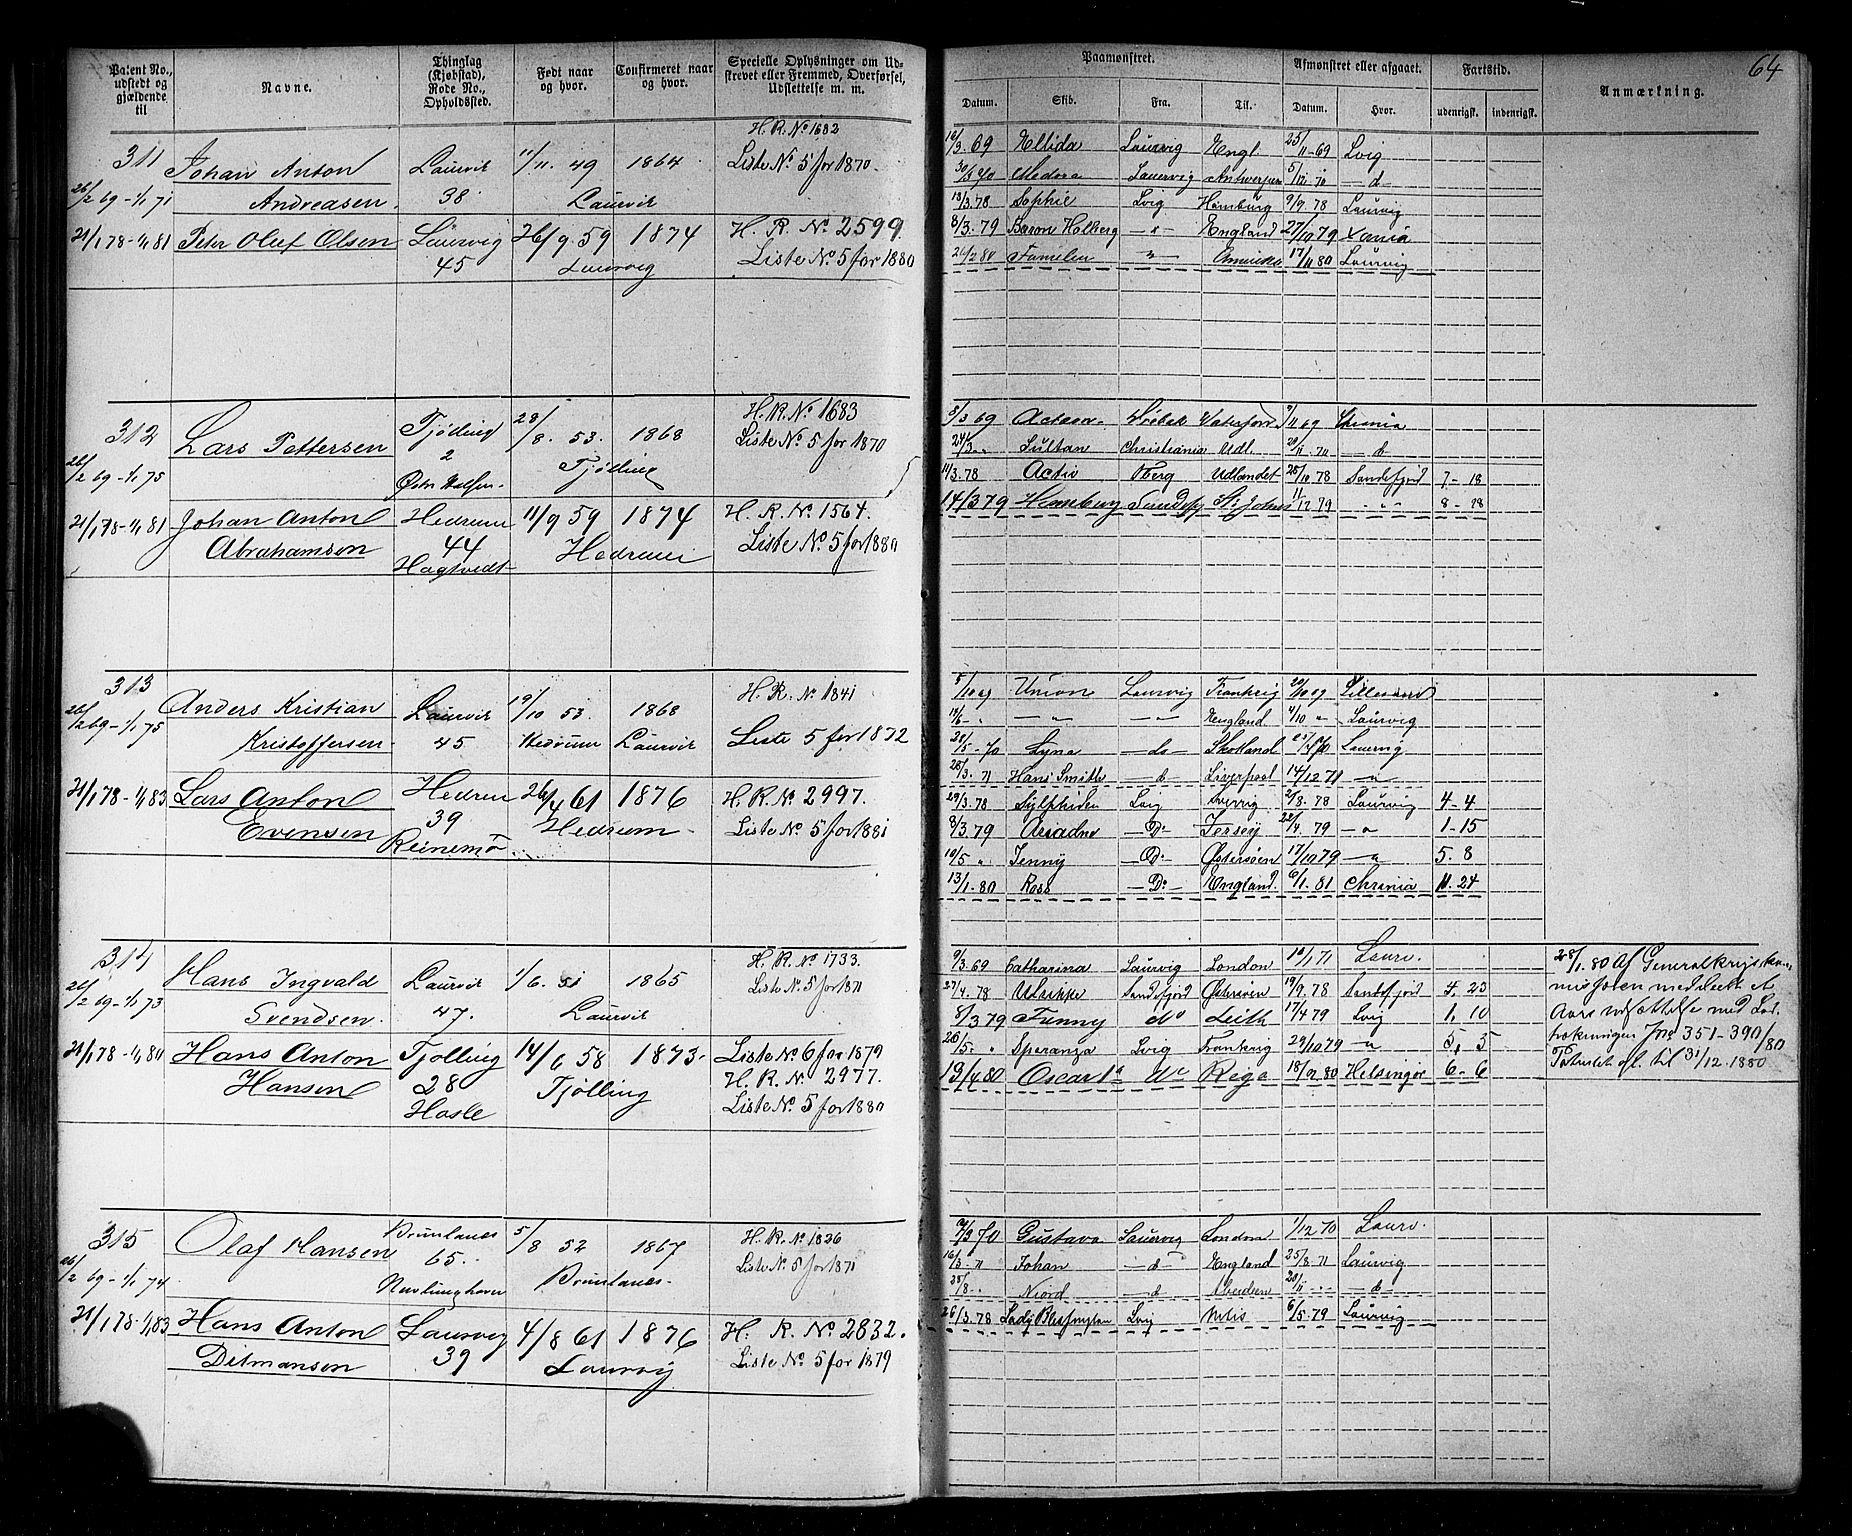 64
Patent No., udstedt og gjældende til
Navne.
Thinglag (Kjøbstad), Rode No., Opholdssted.
Født naar og hvor.
Confirmeret naar og hvor.
Specielle Oplysninger om Udstrevet eller Fremmed, Overførsel, Udslettelse m. m.
Paamønstret.
Afmønstret eller afgaaet.
Fartstid.
Anmærkning.
Datum. Skib. Fra. Til. Datum. Hvor. udenrigsk. indenrigsk.
H. R. No 1682
311 Johan Anton Laurvik 11/11. 49 1864 Liste No. 5 for 1870.
26/2 69 - 1/1 71 Andreasen. 38 Laurvik
21/1 78 - 1/1 81 Peter Oluf Olsen Laurvig 26/9. 59 1874 H. R. No 2599
45 Laurvig Liste No. 5 for 1880
16/3. 69 Ellida Laurvig Engl. 25/11-69 Lvig
Medora Laurvig Antwerpen d
13/3. 78 Sophie Lvig Hamburg 9/9. 78 Laurvig
8/3. 79 Baron Holberg England 27/10 79 Xania
Familien 17/11 80 Laurvig
H. R. No 1683
312 Lars Pettersen Tjølling 28/8. 53. 1868 Liste No. 5 for 1870
26/2 69 - 1/1 75 2 Tjølling
21/1 78 - 1/1 81 Johan Anton Hedrum 11/9 59 1874 H. R. No 1564.
Abrahamsen 44 Hedrum Liste No. 5 for 1880
Hagtvedt
3/3 69
24/3 " Sultan Christiania Udl. d
11/3. 78 Activ Udlandet 25/10 78 Sandefjord 7 - 18
14/3 79 Hamburg St. Johns 11/12 79 " " 8 - 28
313 Anders Kristian Laurvik 19/10 53. 1868 H. R. No 1841
26/2 69 - 1/1 75 Kristoffersen 45 Hedrum Laurvik Liste 5 for 1872
21/1 78 - 1/1 83 Lars Anton Hedrum 26/4 61 1876 H. R. No 2997.
Evensen 39 Hedrum Liste No. 5 for 1881
Reinemø
5/10 69 Union Laurvig Frankrig Lillesand
England 4/10 " Laurvig
Skotland Laurvig
28/3. 71 Hans Smith d Liverpool 14/12 71
29/3. 78 Sylphiden Lvig 2/8. 78 Laurvig 4 - 4
8/3. 79 Ariadne Do Jersey 22/4. 79 1 - 15
10/5 " Jenny Do Østersøen 17/10 79 5. 8
13/1 - 80 Ross Do England. 6/1. 81 Chrania 11 - 24
314 Hans Ingvald Laurvik 1/6. 51 1865 H. R. No 1733.
26/2 69 - 1/1 73 Svendsen. 47. Laurvik Liste No. 5 for 1871
21/1 78 - 1/1 80 Hans Anton Tjølling 14/6 58 1873. Liste No. 6 for 1879
Hansen 28 Tjølling H. R. No. 2977.
Hasle Liste No. 5 for 1880
9/3. 69 Catharina Laurvig London 10/1. 71 Laurv.
27/4. 78 Ulrikke Sandefjord Østersøen 19/9. 78 Sandefjord 4. 23
8/3 79 Fanny do Leith 17/4 79 Lvig 1, 10
26/5. " Speranza Lvig Frankrig 29/10 79 5, 5
19/4 80 Oscar 1ste do Riga 18/9 80 Helsingør 6 - 6
28/1. 80 Af Generalkrigskommissæren meddelt et
Aars Udsættelse med
Jns 351 - 390/80
Patentet gl. til 31/12. 1880
315 Olaf Hansen Brunlanes 5/8 52 1867 H. R. No 1836
26/2 69 - 1/1 74 65. Brunlanes. Liste No. 5 for 1871
Nevlunghavn
21/1 78 - 1/1 83 Hans Anton Laurvig 4/8 61 1876 H. R. No 2832.
Ditmansen 39 Laurvig Liste No. 5 for 1879
Gustava Laurvig London 1/12 70 Laurv.
16/3. 71 Johan d England 25/8. 71 Laurvig
Niord d d
26/3. 78 Lvig 6/5. 79 Laurvig